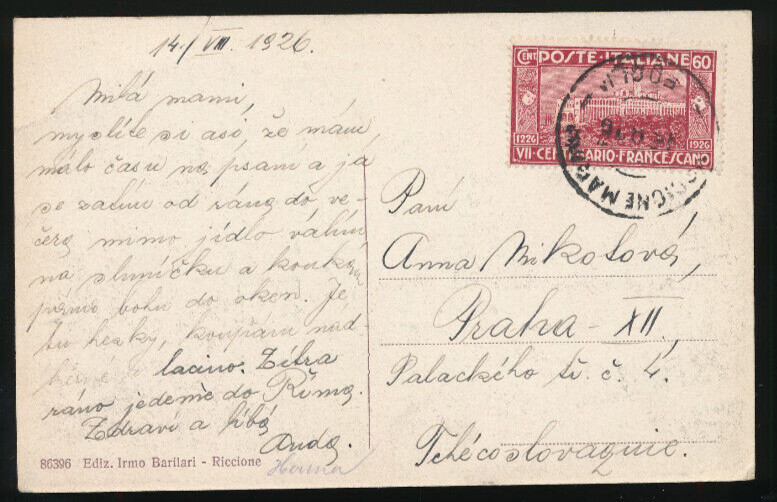 14./VIII. 1926.
Milá mami,
myslíte si asi, že mám
málo času na psaní a já
se zatím od rána do ve-
čera mimo jídlo válím
na sluníčku a koukám
pánu bohu do oken. Je
tu hezky, koupání nád-
a lacino. Zítra
ráno jedeme do Říma.
Zdraví a líbá
Anda.
86396 Ediz. Irmo Barilari - Riccione
CENT POSTE·ITALIANE 60
1226 1926
VII·CENTENARIO·FRANCESCANO
FORLI
Paní
Anna Mikotová,
Praha - XII.,
Palackého tř. č. 4.
Tchécoslovaquie.